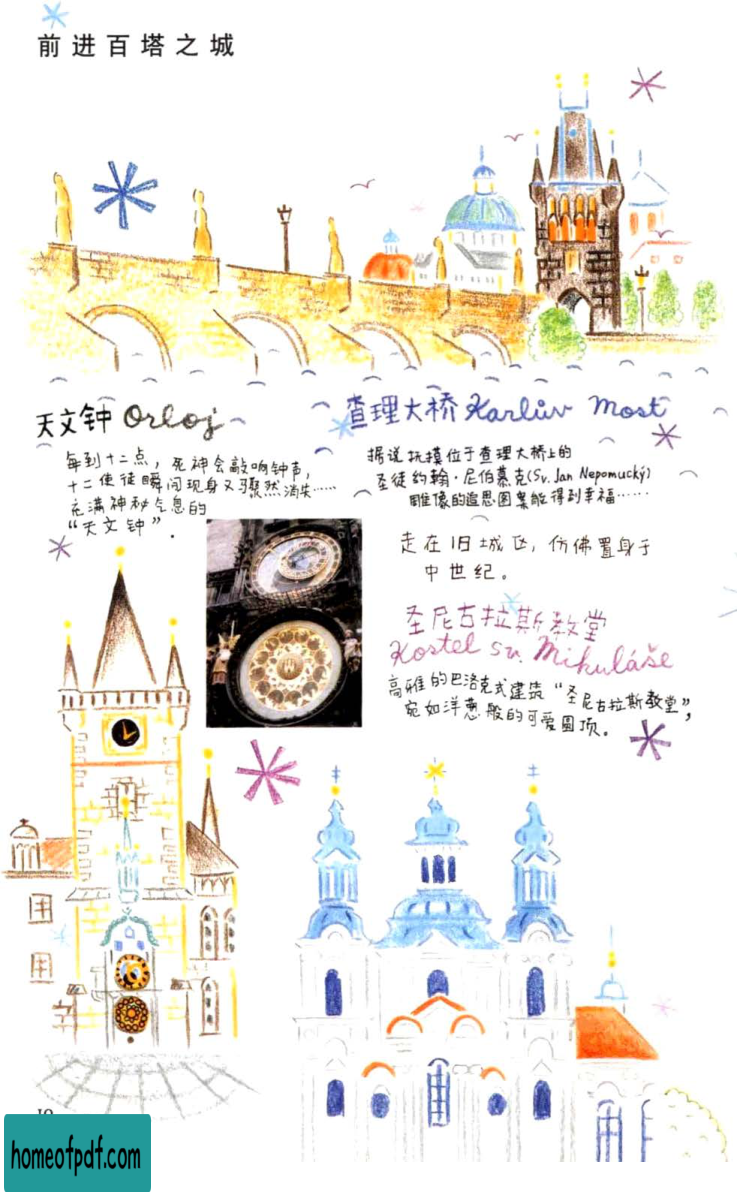 前进百塔之城
天文钟 Orloj
每到十二点，死神会敲响钟声，
十二使徒瞬间现身又骤然消失……
充满神秘气息的
“天文钟”.
查理大桥 Karlův Most
据说抚摸位于查理大桥上的
圣徒约翰·尼伯慕克(Sv. Jan Nepomucký)
雕像的追思图案能得到幸福……
走在旧城区，仿佛置身于
中世纪。
圣尼古拉斯教堂
Kostel sv. Mikuláše
高雅的巴洛克式建筑“圣尼古拉斯教堂”，
宛如洋葱般的可爱圆顶。
10
homeofpdf.com